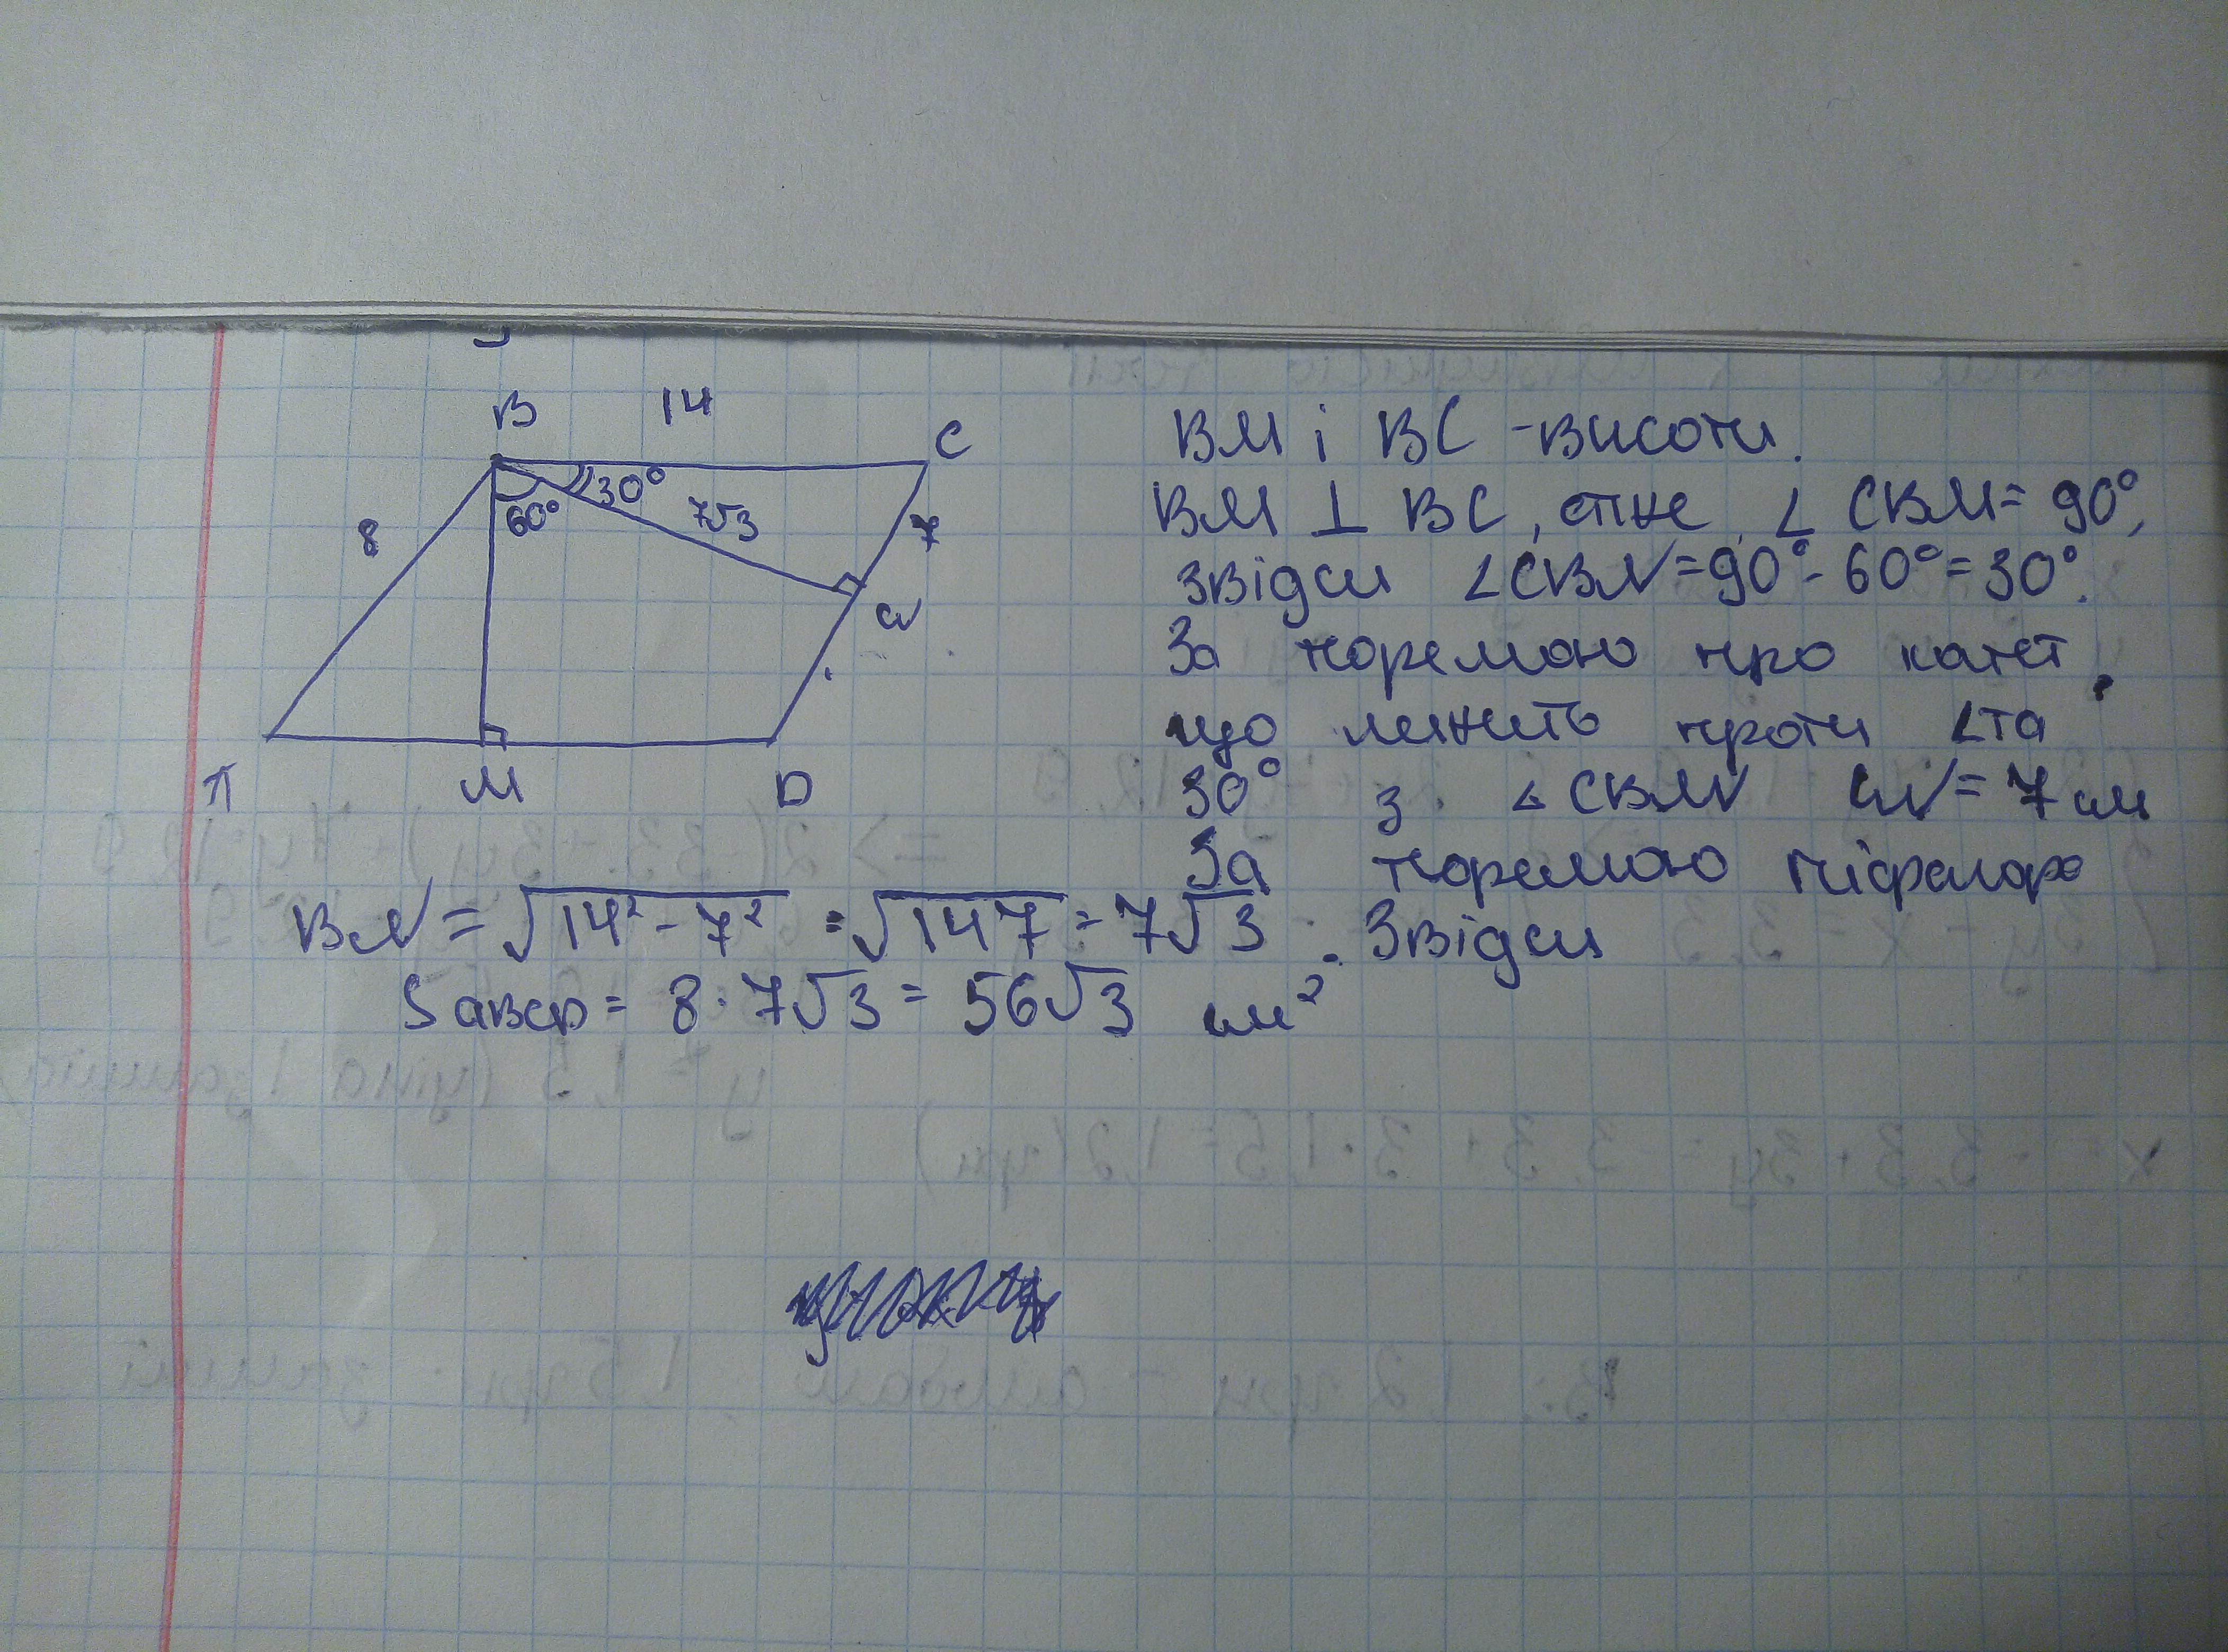 B 14 C
30°
60° 7√3
8 7
N
A M D
BM і BC - висоти.
BM ⊥ BC, отже, ∠ CBM = 90°,
звідси ∠CBN = 90° - 60° = 30°.
За теоремою про катет,
що лежить проти ∠та
30° з △ CBN CN = 7 см
За теоремою Піфагора
BN = √14² - 7² = √147 = 7√3 . Звідси
S ABCD = 8 · 7√3 = 56√3 см²